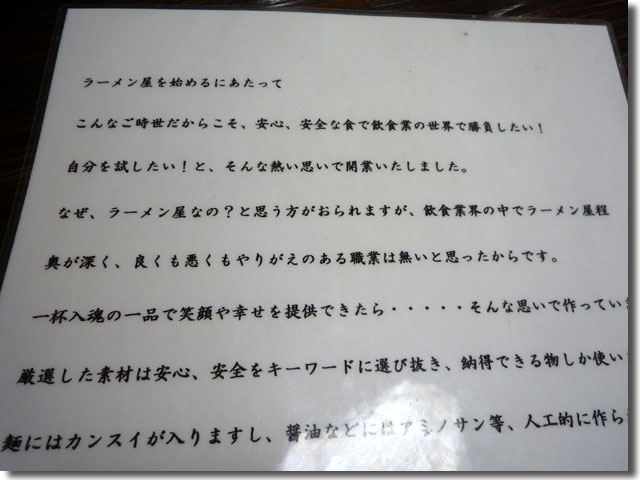 ラーメン屋を始めるにあたって
こんなご時世だからこそ、安心、安全な食で飲食業の世界で勝負したい！
自分を試したい！と、そんな熱い思いで開業いたしました。
なぜ、ラーメン屋なの？と思う方がおられますが、飲食業界の中でラーメン屋程
奥が深く、良くも悪くもやりがえのある職業は無いと思ったからです。
一杯入魂の一品で笑顔や幸せを提供できたら・・・・・そんな思いで作ってい
厳選した素材は安心、安全をキーワードに選び抜き、納得できる物しか使い
麺にはカンスイが入りますし、醤油などにはアミノサン等、人工的に作ら